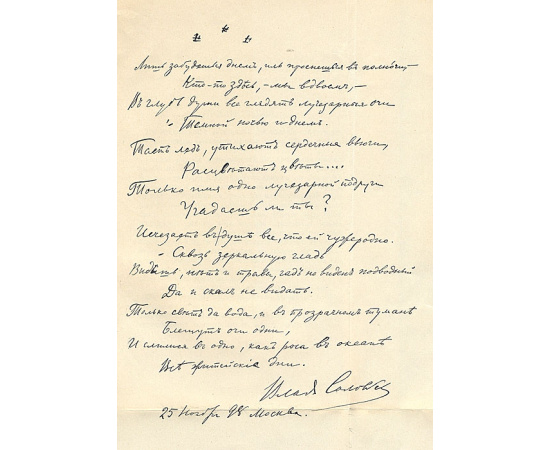 * * *
Лишь забудешься днемъ, иль проснешься въ полночи,—
Кто-то здѣсь,—мы вдвоемъ,—
Въ глубь души все глядятъ лучезарныя очи
Темной ночью и днемъ.
Таетъ ледъ, утихаютъ сердечныя вьюги,
Расцвѣтаютъ цвѣты....
Только имя одно лучезарной подруги
Угадаешь ли ты?
Исчезаетъ въ душѣ все, что ей чужеродно.
Сквозь зеркальную гладь
нѣтъ и травы, гадъ не виденъ подводный
Да и скалъ не видать.
Только свѣтъ да вода, и въ прозрачномъ туманѣ
Блещутъ очи одни,
И слилися въ одно, какъ роса въ океанѣ
Всѣ житейскіе дни.
Влад. Соловьев
25 Ноября 98 Москва.